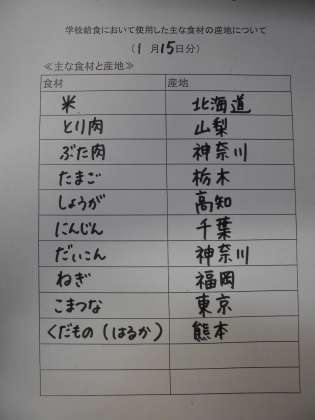 学校給食において使用した主な食材の産地について
(1月15日分)
≪主な食材と産地≫
食材 産地
米 北海道
とり肉 山梨
ぶた肉 神奈川
たまご 栃木
しょうが 高知
にんじん 千葉
だいこん 神奈川
ねぎ 福岡
こまつな 東京
くだもの(はるか) 熊本